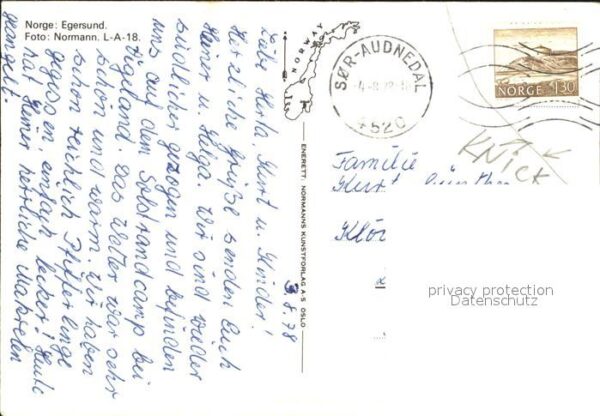 Norge: Egersund.
Foto: Normann. L-A-18.
NORWAY
3.8.78
Liebe Herta, Kurt u. Kinder!
Herzliche Grüße senden Euch
Heiner u. Helga. Wir sind weiter
südlicher gezogen und befinden
uns auf dem Solstrandcamp bei
Vigeland. Das Wetter war sehr
schön und warm. Wir haben
schon reichlich Pfifferlinge
gegessen, einfach lecker! Heute
hat Heiner herrliche Makrelen
geangelt.
ENERETT: NORMANNS KUNSTFORLAG A-S OSLO
SØR-AUDNEDAL
4520
NORGE 130
KNick
Familie
Kurt
Klör
privacy protection
Datenschutz